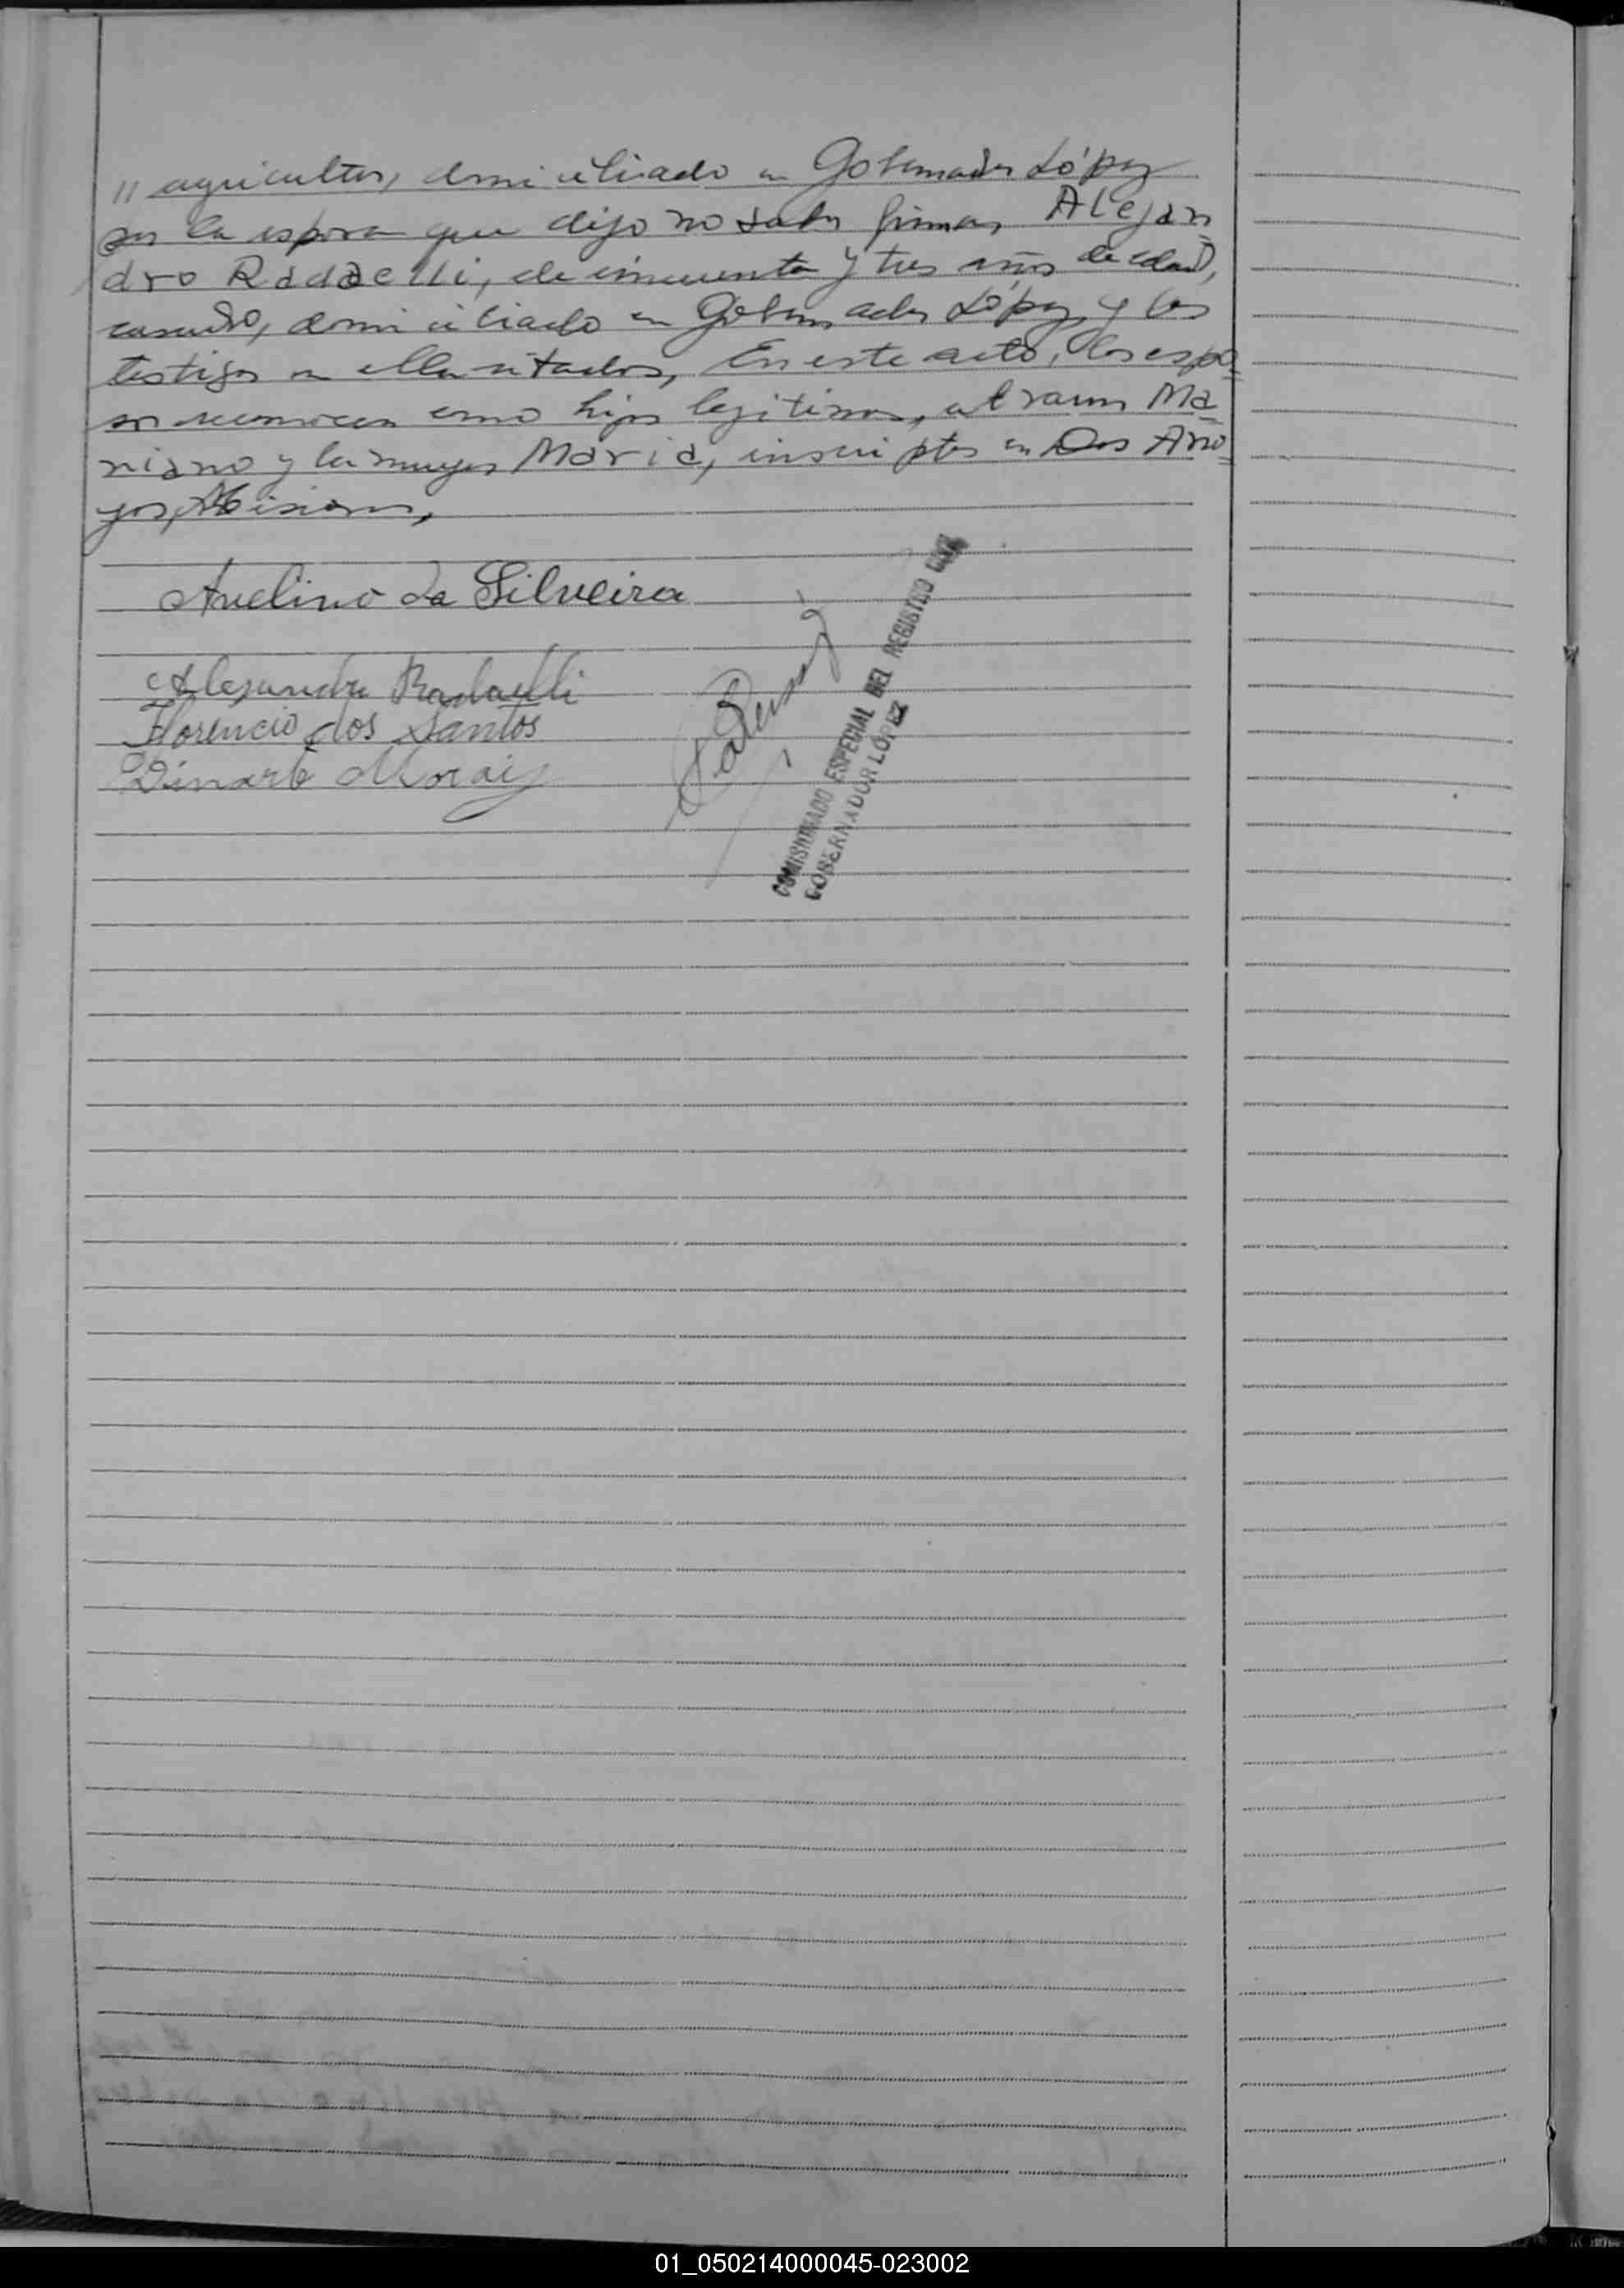 // agricultor, domiciliado en Gobernador López
por la esposa que dijo no saber firmar, Alejan
dro Radaelli, de cincuenta y tres años de edad,
casado, domiciliado en Gobernador López y los
testigos en ella citados, En este acto, los espo
sos reconocen como hijos legitimos, al varon Ma
riano y la mujer Maria, inscriptos en Dos Arro
yos, Misiones,
Avelino da Silveira
Alejandro Radaelli
Florencio dos Santos
Dinarte Morais
COMISIONADO ESPECIAL DEL REGISTRO CIVIL
GOBERNADOR LOPEZ
01_050214000045-023002